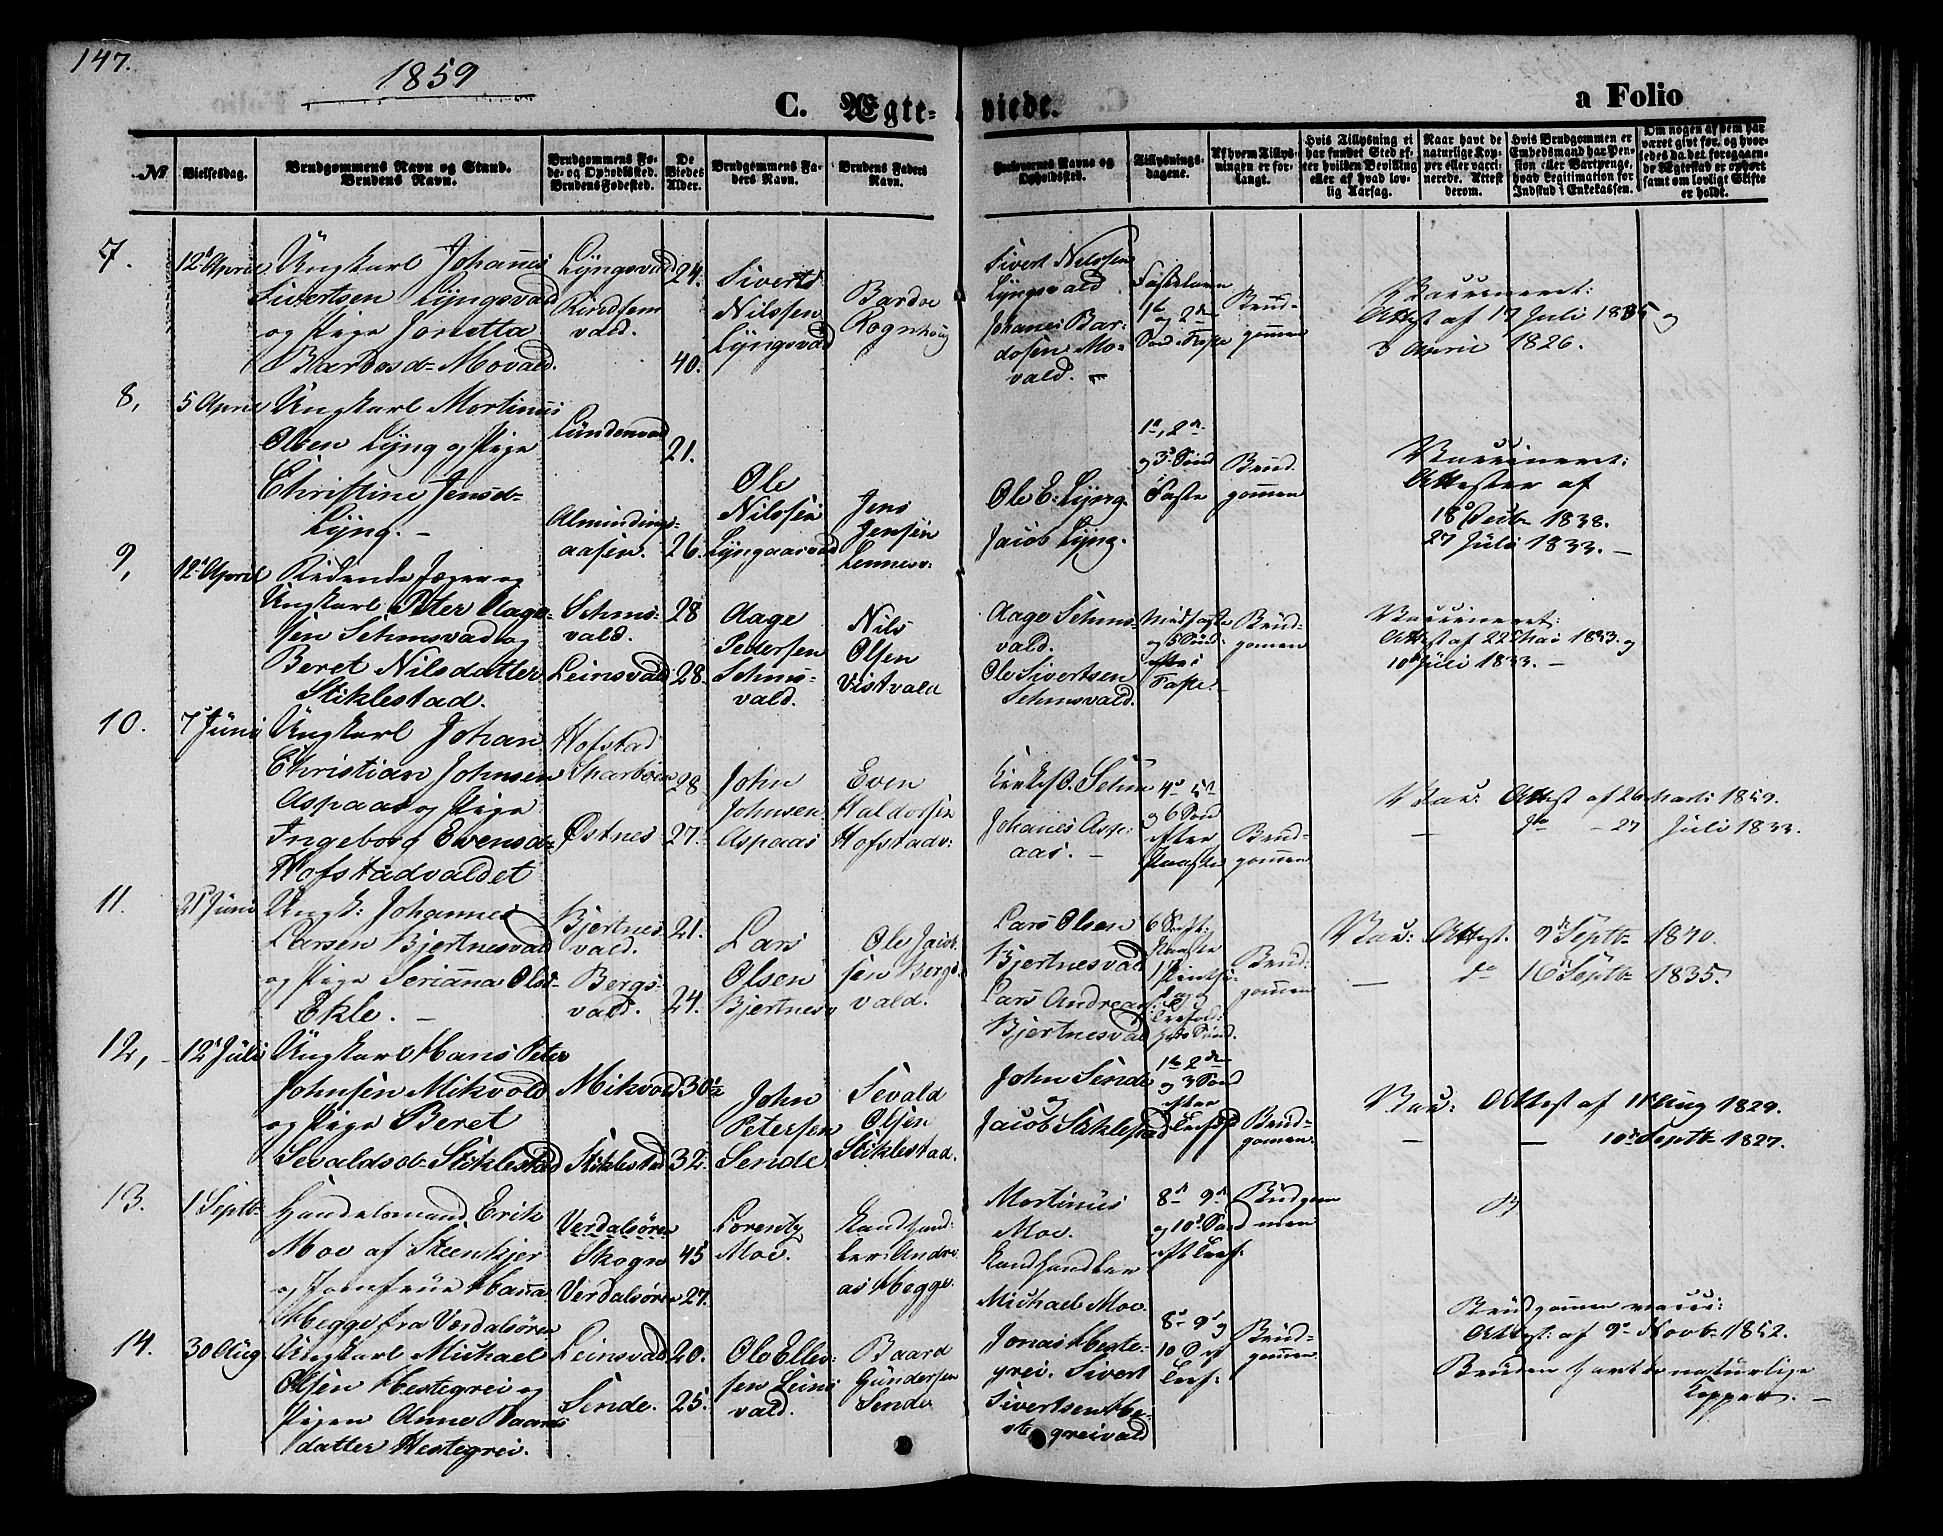 147.
1859
C. Ægte-viede.
a Folio
No
Vielsesdag.
Brudgommens Navn og Stand.
Brudens Navn.
Brudgommens Fo-
de- og Opholdssted.
Brudens Fødested.
De
Viedes
Alder.
Brudgommens Fa-
ders Navn.
Brudens Faders
Navn.
Forlovernes Navne og
Opholdssted.
Tillysnings-
dagene.
Af hvem Tillys-
ningen er for-
langt.
Hvis Tillysning ei
har fundet Sted ef-
ter hvilken Bevilling
eller af hvad lov-
lig Aarsag.
Naar havt de
naturlige Kop-
per eller vacci-
nerede. Attest
derom.
Hvis Brudgommen er
Embedsmand har Pen-
sion eller Vartpenge,
hvad Legitimation for
Indskud i Enkekassen.
Om nogen af dem har
været givt før, og hvor-
ledes da det foregaaen-
de Ægteskab er ophørt
samt om lovligt Skifte
er holdt.
7.
12 April
Ungkarl Johanes
Sivertsen Lyngsvald
og Pige Jonetta
Bardosd. Movald.
Lyngsvald
Rindsem
vald.
24.
40.
Siverts
Nilssen
Lyngsvald
Bardo
Rognhoug
Sivert Nilssen
Lyngsvald
Johanes Bar-
dosen Mo-
vald. —
1te og 2den
Brud-
gommen
Vaccineret:
Attest af 17 Juli 1835 og
3 April 1826.
8,
5 April
Ungkarl Mortinus
Olsen Lyng og Pige
Christine Jensd.
Lyng. —
Lundenvald
Almindings-
aasen.
21.
26.
Ole
Nilssen
Lyngaasvald
Jens
Jensen
Lennesv.
Ole E. Lyng.
Jacob Lyng.
1ste, 2den
og 3die Sønd
Faste
Brud-
gommen
Vaccineret:
Attester af
18 Octb. 1838.
27 Juli 1833. —
9,
12 April
Ridende Jæger og
Ungkarl Peter Aage-
sen Sehmsvald og
Beret Nilsdatter
Stiklestad.
Sehms-
vald.
Leinsvald
28
28.
Aage
Pedersen
Sehms-
vald.
Nils
Olsen
Vistvald
Aage Sehms-
vald.
Ole Sivertsen
Sehmsvald.
Midfaste
og 5 Sønd:
Faste. —
Brud-
gommen
Vaccineret:
Attest af 22 Mai 1833. og
10 Juli 1833. —
10.
7 Juni
Ungkarl Johan
Christian Johnsen
Aspaas og Pige
Ingeborg Evensd.
Hofstadvaldet
Hofstad
Skarboen
Østnes
28
27.
John
Johnsen
Aspaas
Even
Haldorsen
Hofstadv.
Kirkes. O. Sehm
Johanes Asp-
aas. —
4de 5te
og 6 Sønd
efter
Paaske
Brud-
gommen
Vac: Attest af 26 Marts 1859.
— do — 27 Juli 1833.
11.
21 Juni
Ungk: Johannes
Larsen Bjertnesvald
og Pige Serianna Olsd.
Ekle. —
Bjertnes
vald.
Bergs-
vald.
21.
24.
Lars
Olsen
Bjertnesv
Ole Jacob-
sen Bergs-
vald.
Lars Olsen
Bjertnesvald
Lars Andreas
Bjertnesvald
6 S. eft:
Paaske
Brud-
gommen
Vac: Attest. 9 Septb. 1840.
— do 16 Septb. 1835.
12,
12 Juli
Ungkarl Hans Peter
Johnsen Mikvold
og Pige Beret
Sevaldsd. Stiklestad
Mikvold
Stiklestad
30½
32.
John
Petersen
Sende
Sevald
Olsen
Stiklestad.
John Sende
og
Jacob Stiklestad
1te 2den
og 3 Sønd
efter
Trefold
Brud-
gommen
Vac: Attest af 11 Aug 1829.
— — 10 Septb. 1827.
13.
1 Septb.
Handelsmand Erik
Moe af Steenkjer
og Jomfrue Hanna
Hegge fra Verdalsøren
Verdalsøren
Skogn
Verdalsøren
45
27.
Lorentz
Moe.
Landhand-
ler Andre-
as Hegge.
Mortinus
Moe.
Landhandler
Michael Moe.
8de 9de
og 10 Sønd
eft Tref.
Brudgom
men
14.
30 Aug
Ungkarl Michael
Olsen Hestegrei og
Pigen Anne Baards
datter Hestegrei.
Leinsvald
Sende.
20.
25.
Ole Elles-
sen Leins
vald.
Baard
Gundersen
Sende
Jonas Heste-
grei. Sivert
Sivertsen He-
stegreivald
8de 9de og
10 S eft
Tref.
Brud-
gommen
Brudgommen vacci:
Attest: af 9 Novb. 1852.
Bruden havt de naturlige
Kopper. —